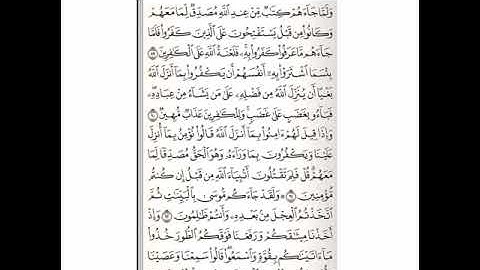 وَلَمَّا جَآءَهُمْ كِتَٰبٌ مِّنْ عِندِ ٱللَّهِ مُصَدِّقٌ لِّمَا مَعَهُمْ
وَكَانُوا۟ مِن قَبْلُ يَسْتَفْتِحُونَ عَلَى ٱلَّذِينَ كَفَرُوا۟ فَلَمَّا
جَآءَهُم مَّا عَرَفُوا۟ كَفَرُوا۟ بِهِۦ فَلَعْنَةُ ٱللَّهِ عَلَى ٱلْكَٰفِرِينَ ٨٩
بِئْسَمَا ٱشْتَرَوْا۟ بِهِۦٓ أَنفُسَهُمْ أَن يَكْفُرُوا۟ بِمَآ أَنزَلَ ٱللَّهُ
بَغْيًا أَن يُنَزِّلَ ٱللَّهُ مِن فَضْلِهِۦ عَلَىٰ مَن يَشَآءُ مِنْ عِبَادِهِۦ
فَبَآءُو بِغَضَبٍ عَلَىٰ غَضَبٍ وَلِلْكَٰفِرِينَ عَذَابٌ مُّهِينٌ ٩٠
وَإِذَا قِيلَ لَهُمْ ءَامِنُوا۟ بِمَآ أَنزَلَ ٱللَّهُ قَالُوا۟ نُؤْمِنُ بِمَآ أُنزِلَ
عَلَيْنَا وَيَكْفُرُونَ بِمَا وَرَآءَهُۥ وَهُوَ ٱلْحَقُّ مُصَدِّقًا لِّمَا
مَعَهُمْ قُلْ فَلِمَ تَقْتُلُونَ أَنۢبِيَآءَ ٱللَّهِ مِن قَبْلُ إِن كُنتُم
مُّؤْمِنِينَ ٩١ وَلَقَدْ جَآءَكُم مُّوسَىٰ بِٱلْبَيِّنَٰتِ ثُمَّ
ٱتَّخَذْتُمُ ٱلْعِجْلَ مِنۢ بَعْدِهِۦ وَأَنتُمْ ظَٰلِمُونَ ٩٢ وَإِذْ
أَخَذْنَا مِيثَٰقَكُمْ وَرَفَعْنَا فَوْقَكُمُ ٱلطُّورَ خُذُوا۟
مَآ ءَاتَيْنَٰكُم بِقُوَّةٍ وَٱسْمَعُوا۟ قَالُوا۟ سَمِعْنَا وَعَصَيْنَا